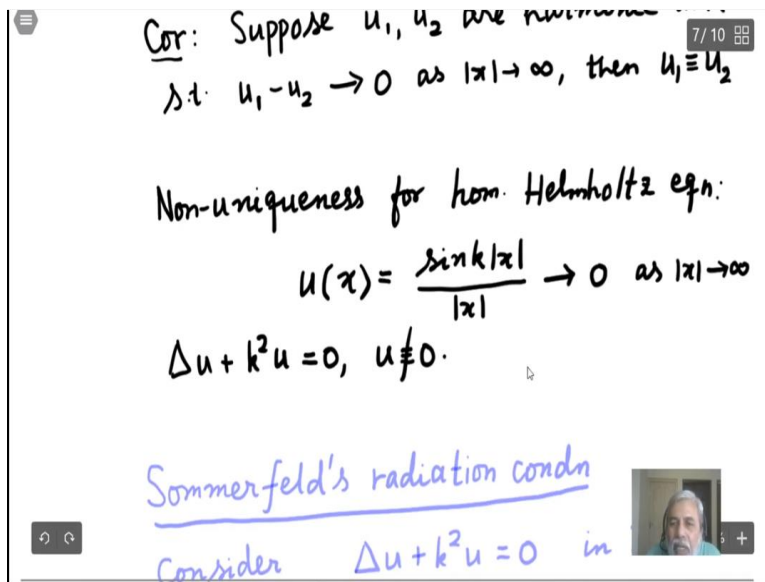 Cor: Suppose u₁, u₂ are
7/10
s.t. u₁-u₂ → 0 as |x|→ ∞, then u₁≡u₂
Non-uniqueness for hom. Helmholtz eqn:
u(x)= sink|x| / |x| → 0 as |x|→∞
Δu + k²u =0, u≢0.
Sommerfeld's radiation condn
Consider Δu+k²u =0 in